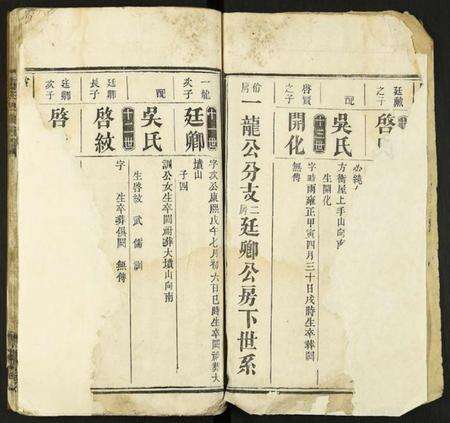 廷獻
之子
啓
配
吳氏
方衝屋上手山向
生開化
啓賢
之子
十三世
開化
字時雨雍正甲寅四月三十日戌時生卒葬闕
無傳
一龍公分支二房廷卿公房下世系
一龍
次子
十一世
廷卿
字次公康熙戊午七月初六日巳時生卒闕祔葬大
墳山
子四
配
吳氏
訓公女生卒闕祔葬大墳山向南
生啓紋 武 儒 訓
廷卿
長子
十二世
啓紋
字 生卒葬俱闕 無傳
廷卿
次子
啓